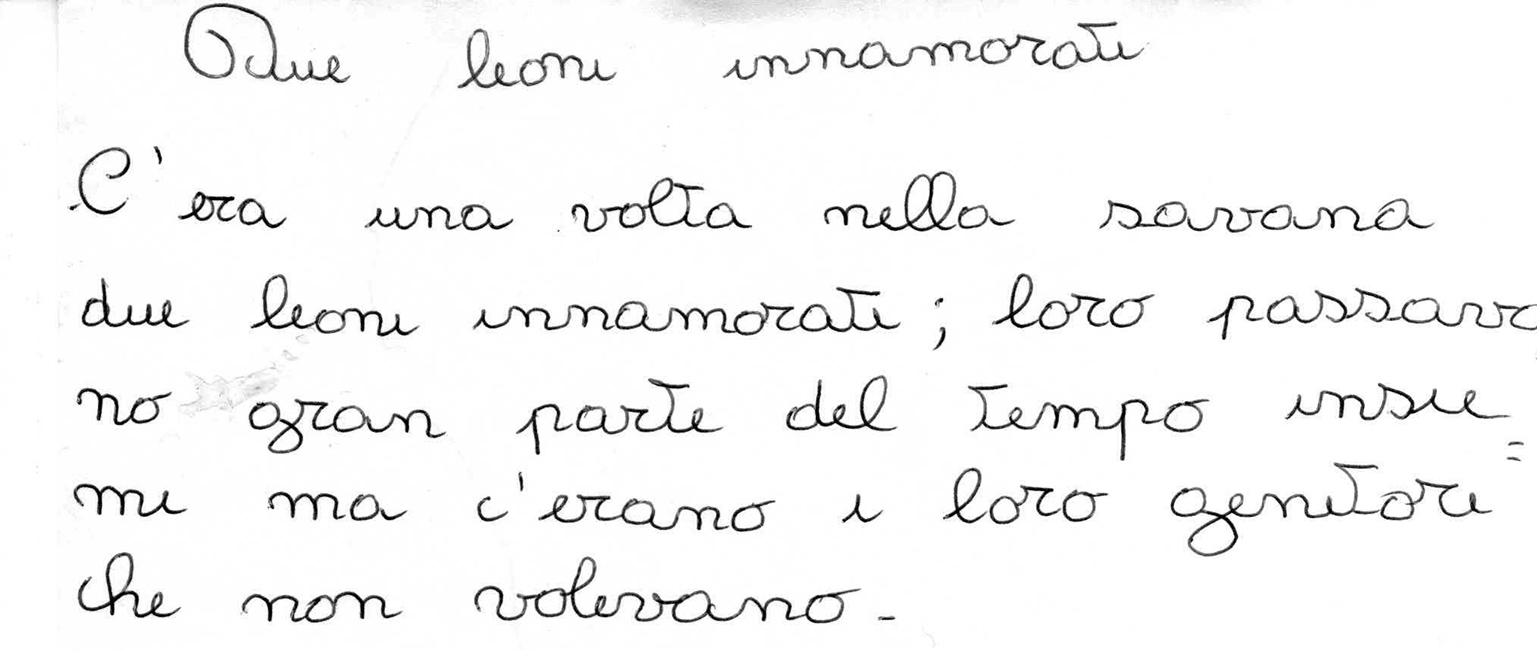 Due leoni innamorati
C'era una volta nella savana
due leoni innamorati; loro passava
no gran parte del tempo insie=
me ma c'erano i loro genitori
che non volevano.